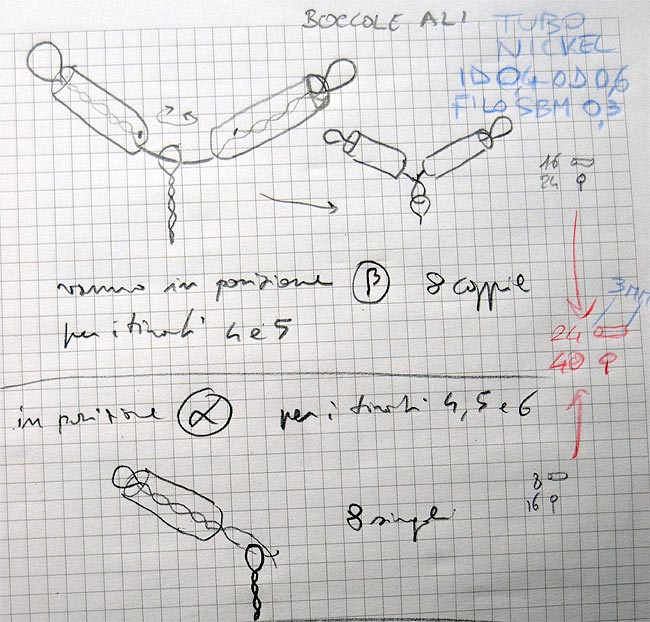 BOCCOLE ALI
TUBO
NICKEL
ID 0,4 OD 0,6
FILO SBM 0,3
16
24
vanno in posizione β 8 coppie
per i tiranti 4 e 5
3MM
24
40
in posizione α per i tiranti 4, 5 e 6
8
16
8 singoli